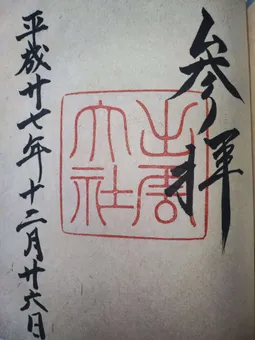 参拝
出雲
大社
平成廿七年十二月廿六日